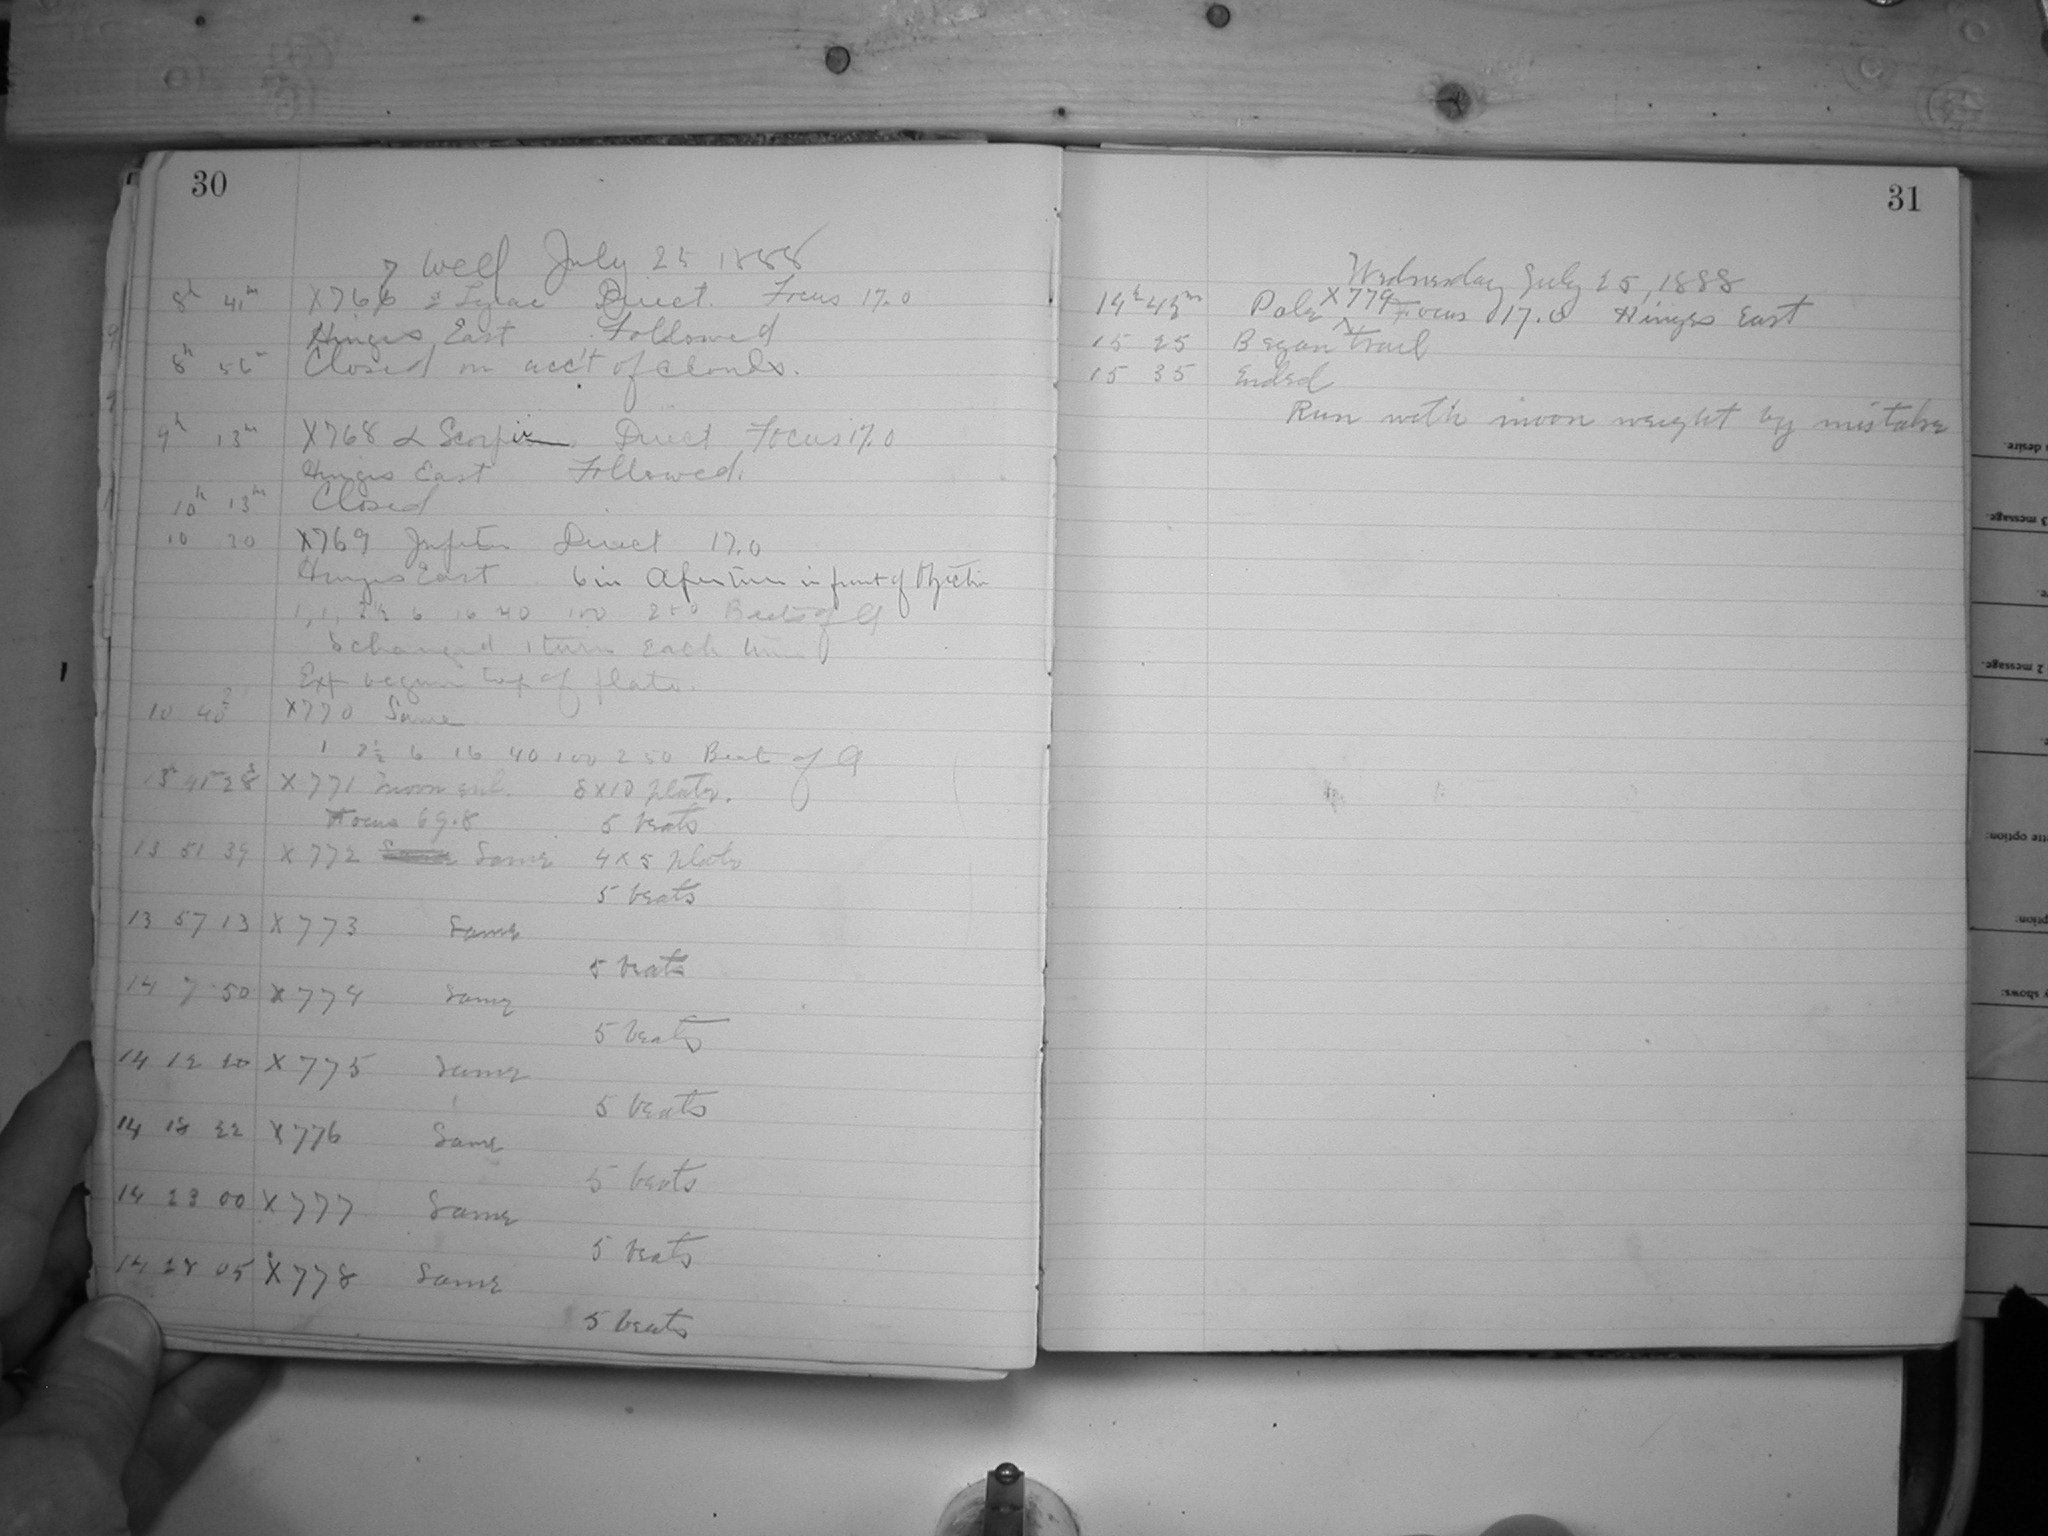 30
July 25 1888
8h 41m X766 Lyrae Direct. Focus 17.0
Hinges East Followed
8h 56m Closed on acc't of clouds.
9h 13m X768 α Scorpii Direct Focus 17.0
Hinges East Followed.
10h 13m Closed
10 30 X769 Jupiter Direct 17.0
Hinges East 6 in Aperture in front of Objective
1, 1, 2½ 6 16 40 100 250 Beats of
changed 1 turn each time
Exp began top of plate.
10 40 X770 Same
1 2½ 6 16 40 100 250 Beats of
13h 41m 28s X771 Moon enl. 8x10 plate.
Focus 69.8 5 beats
13 51 39 X772 Same 4x5 plate
5 beats
13 57 13 X773 Same
5 beats
14 7 50 X774 Same
5 beats
14 12 20 X775 Same
5 beats
14 18 22 X776 Same
5 beats
14 23 00 X777 Same
5 beats
14 28 05 X778 Same
5 beats
31
Wednesday July 25, 1888
14h Pole X779 Focus 17.0 Hinges East
15 25 Began trail
15 35 Ended
Run with moon weight by mistake
desire.
3 message.
2 message.
option:
shows: